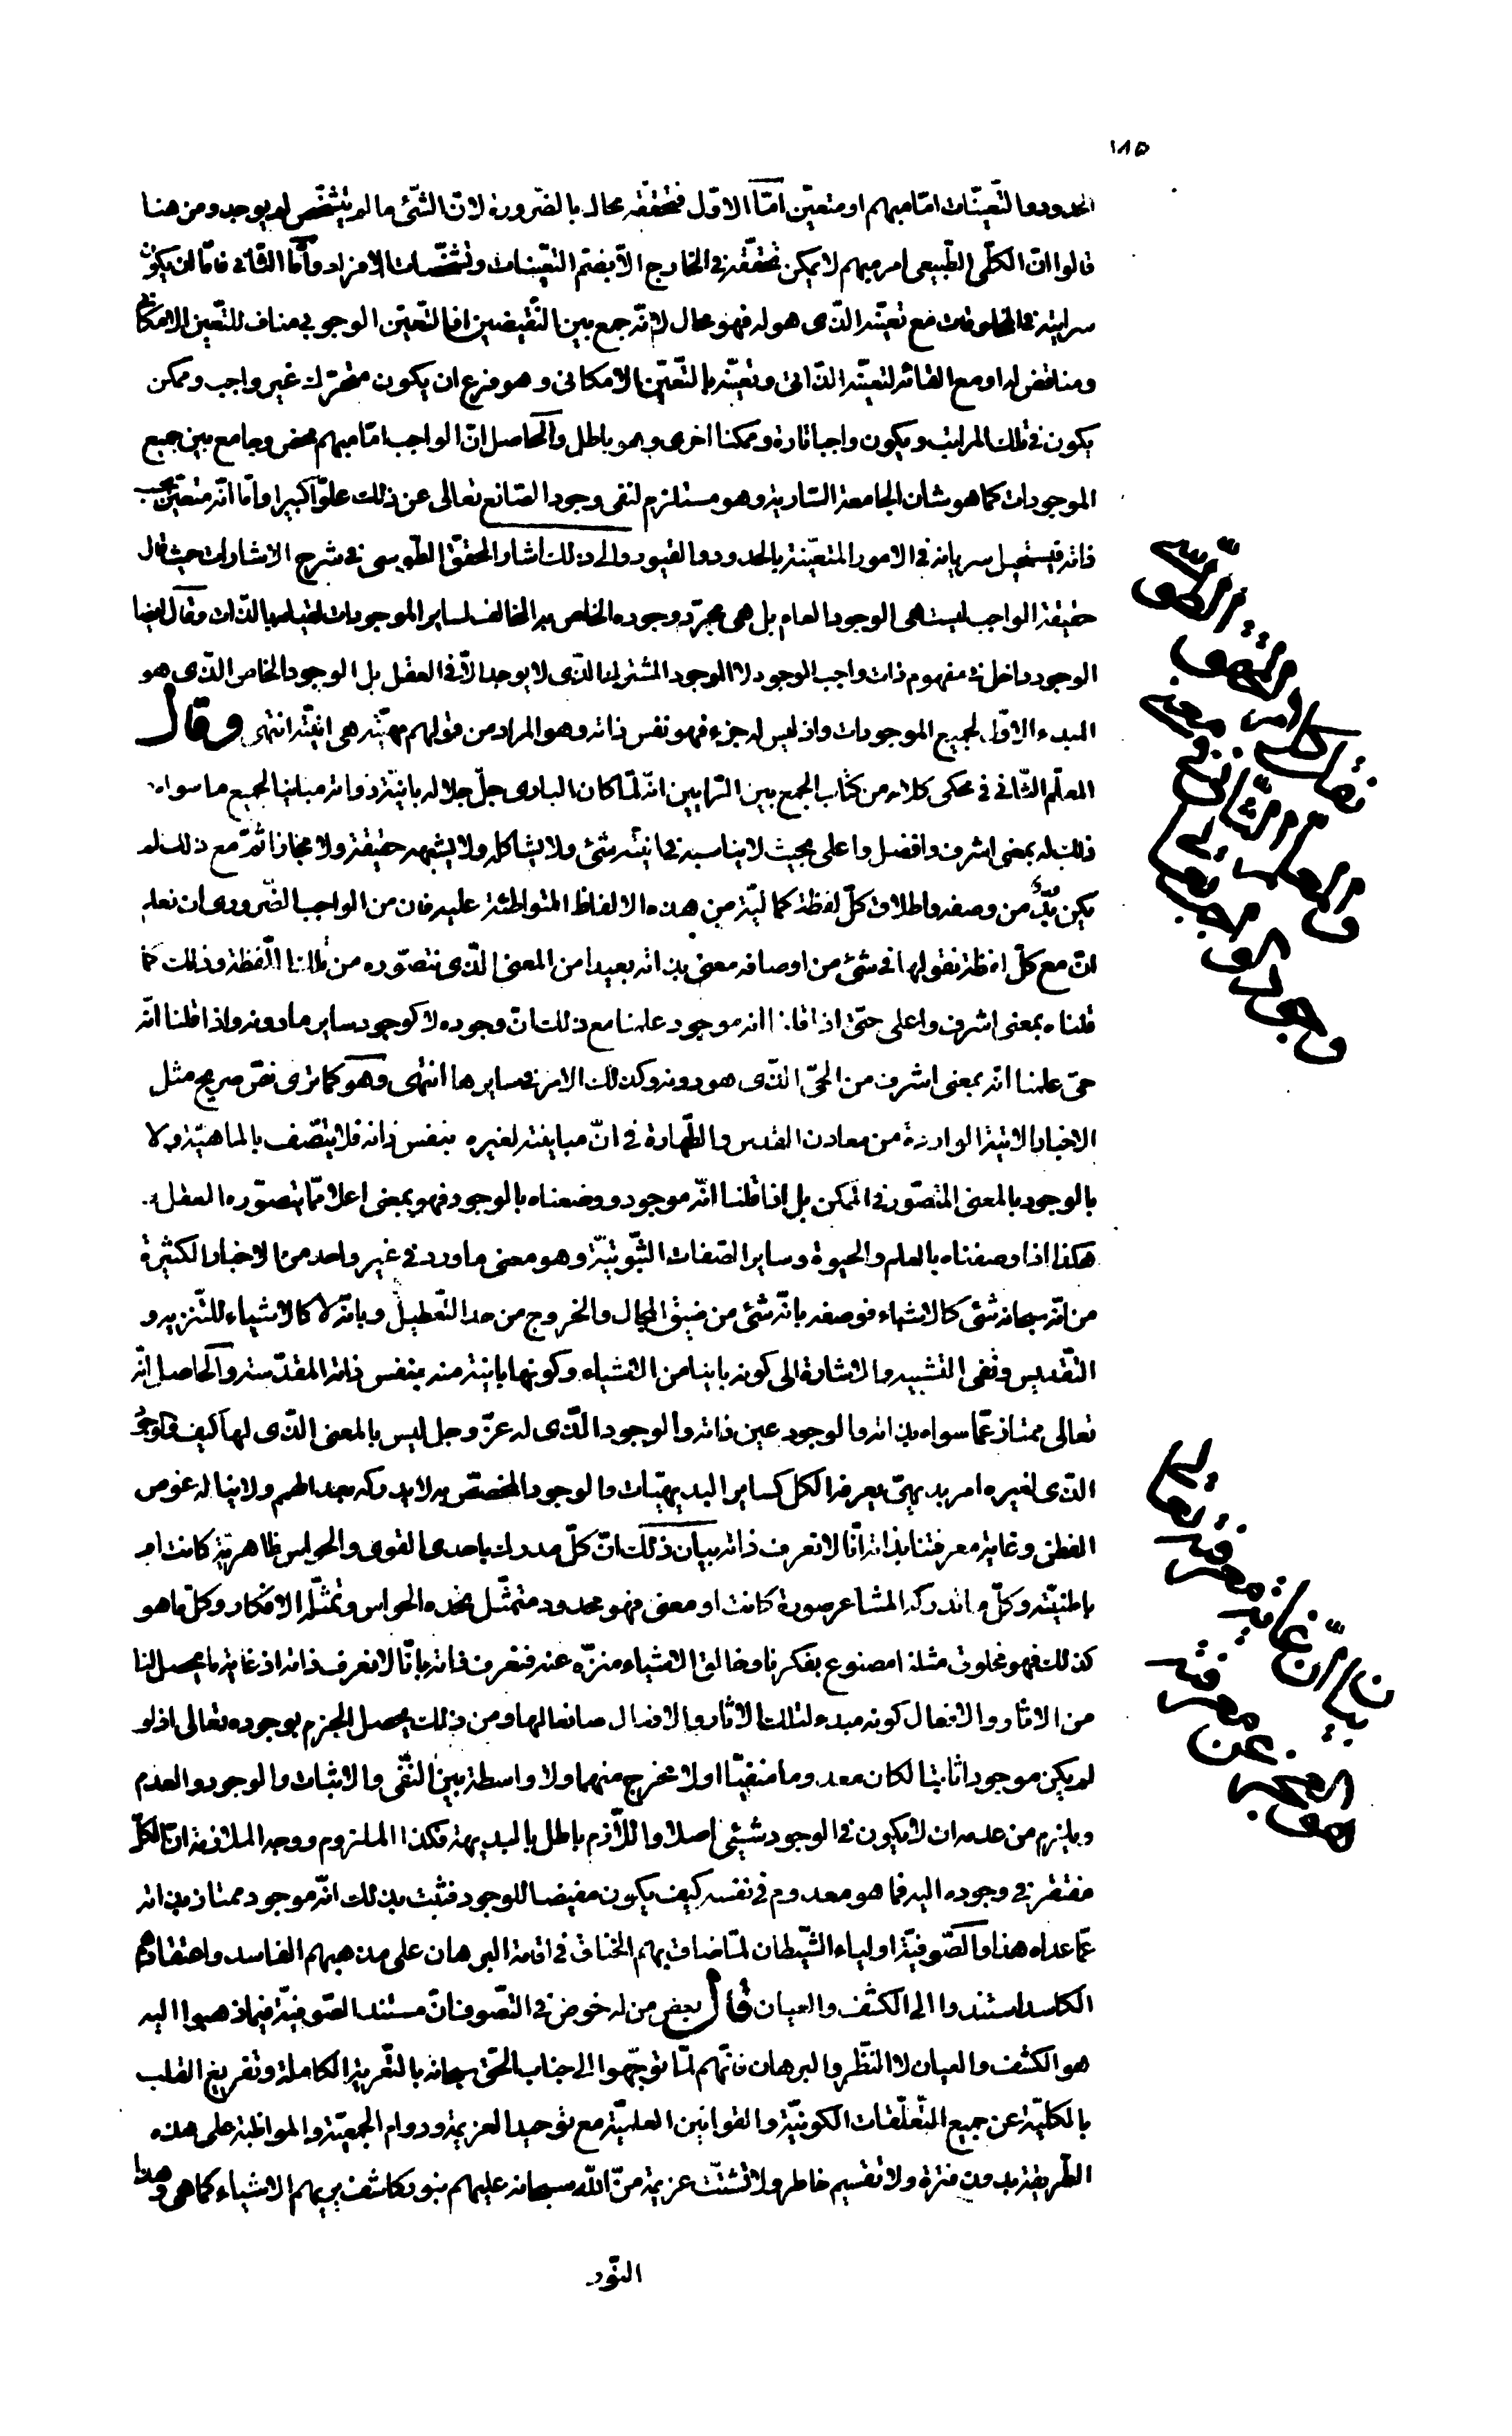 ١٨٥
الحدود والتّعيّنات امّا مبهم او متعيّن امّا الاوّل فتحقّقه محال بالضّرورة لانّ الشّئ ما لم يتشخّص لم يوجد ومن هنا
قالوا انّ الكلّى الطّبيعى امر مبهم لا يمكن تحقّقه فى الخارج الّا بضمّ التعيّنات وتشخّصات الافراد وامّا الثّانى فامّا ان يكون
سرايته فى المخلوقات مع تعيّنه الذّى هو له فهو محال لانّه جمع بين النّقيضين اذ التّعيّن الوجوبى مناف للتّعيّن الامكانى
ومناقض له او مع القائه لتعيّنه الذّاتى وتعيّنه بالتّعيّن الامكانى وهو فرع ان يكون متحرّك غير واجب وممكن
يكون فى تلك المراتب ويكون واجبا تارة وممكنا اخرى وهو باطل والحاصل انّ الواجب امّا مبهم محض وجامع بين جميع
الموجودات كما هو شان الجامعة السّارية وهو مستلزم لنفى وجود الصّانع تعالى عن ذلك علوّا كبيرا وامّا انّه متعيّن بحسب
ذاته فيستحيل سريانه فى الامور المتعيّنة بالحدود والقيود والى ذلك اشار المحقّق الطّوسى فى شرح الاشارات حيث قال
حقيقة الواجب ليست هى الوجود العام بل هى مجرّد وجوده الخاص به المخالف لساير الموجودات لقيامه بالذّات وقال ايضا
الوجود داخل فى مفهوم ذات واجب الوجود لا الوجود المشترك الذّى لا يوجد الّا فى العقل بل الوجود الخاص الذّى هو
المبدء الاوّل لجميع الموجودات واذ ليس له جزء فهو نفس ذاته وهو المراد من قولهم مهيّته هى انيّته انتهى وقال
المعلّم الثّانى فى محكى كلامه من كتاب الجمع بين الرّايين انّه لمّا كان البارى جلّ جلاله بانيّته وذاته مباينا لجميع ما سواه
ذلك له بمعنى اشرف وافضل واعلى بحيث لا يناسبه فى انيّته شئ ولا يشاكله ولا يشبهه حقيقة ولا مجازا ثمّ مع ذلك لم
يكن بدّ من وصفه واطلاق كلّ لفظة كماليّة من هذه الالفاظ المتواطئة عليه فان من الواجب الضّرورى ان نعلم
انّ مع كلّ لفظة نقولها فى شئ من اوصافه معنى بذاته بعيدا من المعنى الذّى نتصوّره من تلك اللّفظة وذلك كما
قلناه بمعنى اشرف واعلى حتّى اذا قلنا انه موجود علمنا مع ذلك انّ وجوده لا كوجود ساير ما دونه واذا قلنا انّه
حىّ علمنا انّه بمعنى اشرف من الحىّ الذّى هو دونه وكذلك الامر فى سايرها انتهى وهو كما ترى نصّ صريح مثل
الاخبار الاتية الواردة من معادن القدس والطّهارة فى انّ مباينته لغيره بنفس ذاته فلا يتّصف بالماهيّة ولا
بالوجود بالمعنى المتصوّر فى الممكن بل اذا قلنا انّه موجود ووضعناه بالوجود فهو بمعنى اعلا ممّا يتصوّره العقل و
هكذا اذا وصفناه بالعلم والحيوة وساير الصّفات الثّبوتيّة وهو معنى ما ورد فى غير واحد من الاخبار الكثيرة
من انّه سبحانه شئ لا كالاشياء فوصفه بانّه شئ من ضيق المجال والخروج من حد التّعطيل وبانّه لا كالاشياء للتّنزيه و
التّقديس ونفى التشبيه والاشارة الى كونه باينا من الاشياء وكونها باينة منه بنفس ذاته المقدّسة والحاصل انّه
تعالى ممتاز عمّا سواه بذاته والوجود عين ذاته والوجود الذّى له عزّ وجل ليس بالمعنى الذّى لها كيف والوجود
الذّى لغيره امر بديهىّ يعرفه الكل كساير البديهيّات والوجود المختصّ به لا يدركه بعد الهمم ولا يناله غوص
الفطن وغاية معرفتنا بذاته انّا لا نعرف ذاته بيان ذلك انّ كلّ مدرك باحدى القوى والحواس ظاهريّة كانت ام
باطنيّة وكلّ ما تدركه المشاعر صورة كانت او معنى فهو محدود متمثّل تحدّه الحواس وتمثّله الافكار وكلّ ما هو
كذلك فهو مخلوق مثلنا مصنوع بفكرنا وخالق الاشياء منزّه عنه فنعرف ذاته بانّا لا نعرف ذاته اذ غاية ما يحصل لنا
من الاثار والافعال كونه مبدء لتلك الاثار والافعال صانعا لها ومن ذلك يحصل الجزم بوجوده تعالى اذ لو
لم يكن موجودا ثابتا لكان معدوما منفيّا اولا مخرج منهما ولا واسطة بين النّفى والاثبات والوجود والعدم
ويلزم من عدمه ان لا يكون فى الوجود شيئى اصلا واللّازم باطل بالبديهة فكذا الملزوم ووجه الملازمة انّ الكلّ
مفتقر فى وجوده اليه فما هو معدوم فى نفسه كيف يكون مفيضا للوجود فثبت بذلك انّه موجود ممتاز بذاته
عمّا عداه هذا والصّوفيّة اولياء الشّيطان لمّا ضاق بهم الخناق فى اقامة البرهان على مذهبهم الفاسد واعتقادهم
الكاسد استندوا الى الكشف والعيان قال بعض من له خوض فى التصّوف انّ مستند الصّوفيّة فيما ذهبوا اليه
هو الكشف والعيان لا النّظر والبرهان فانّهم لمّا توجّهوا الى جناب الحّق سبحانه بالتّعرية الكاملة وتفريغ القلب
بالكليّة عن جميع التّعلّقات الكونيّة والقوانين العلميّة مع توحيد العزيمة ودوام الجمعيّة والمواظبة على هذه
الطّريقة بدون فترة ولا تقسيم خاطر ولا تشتّت عزيمة منّ اللّه سبحانه عليهم بنور كاشف يريهم الاشياء كما هى وهذا
النّور
نقل كلام المحقق الطّوسى
والمعلم الثّانى فى معنى
وجوب الوجود
بيان انّ غاية معرفته تعالى
هو العجز عن معرفته